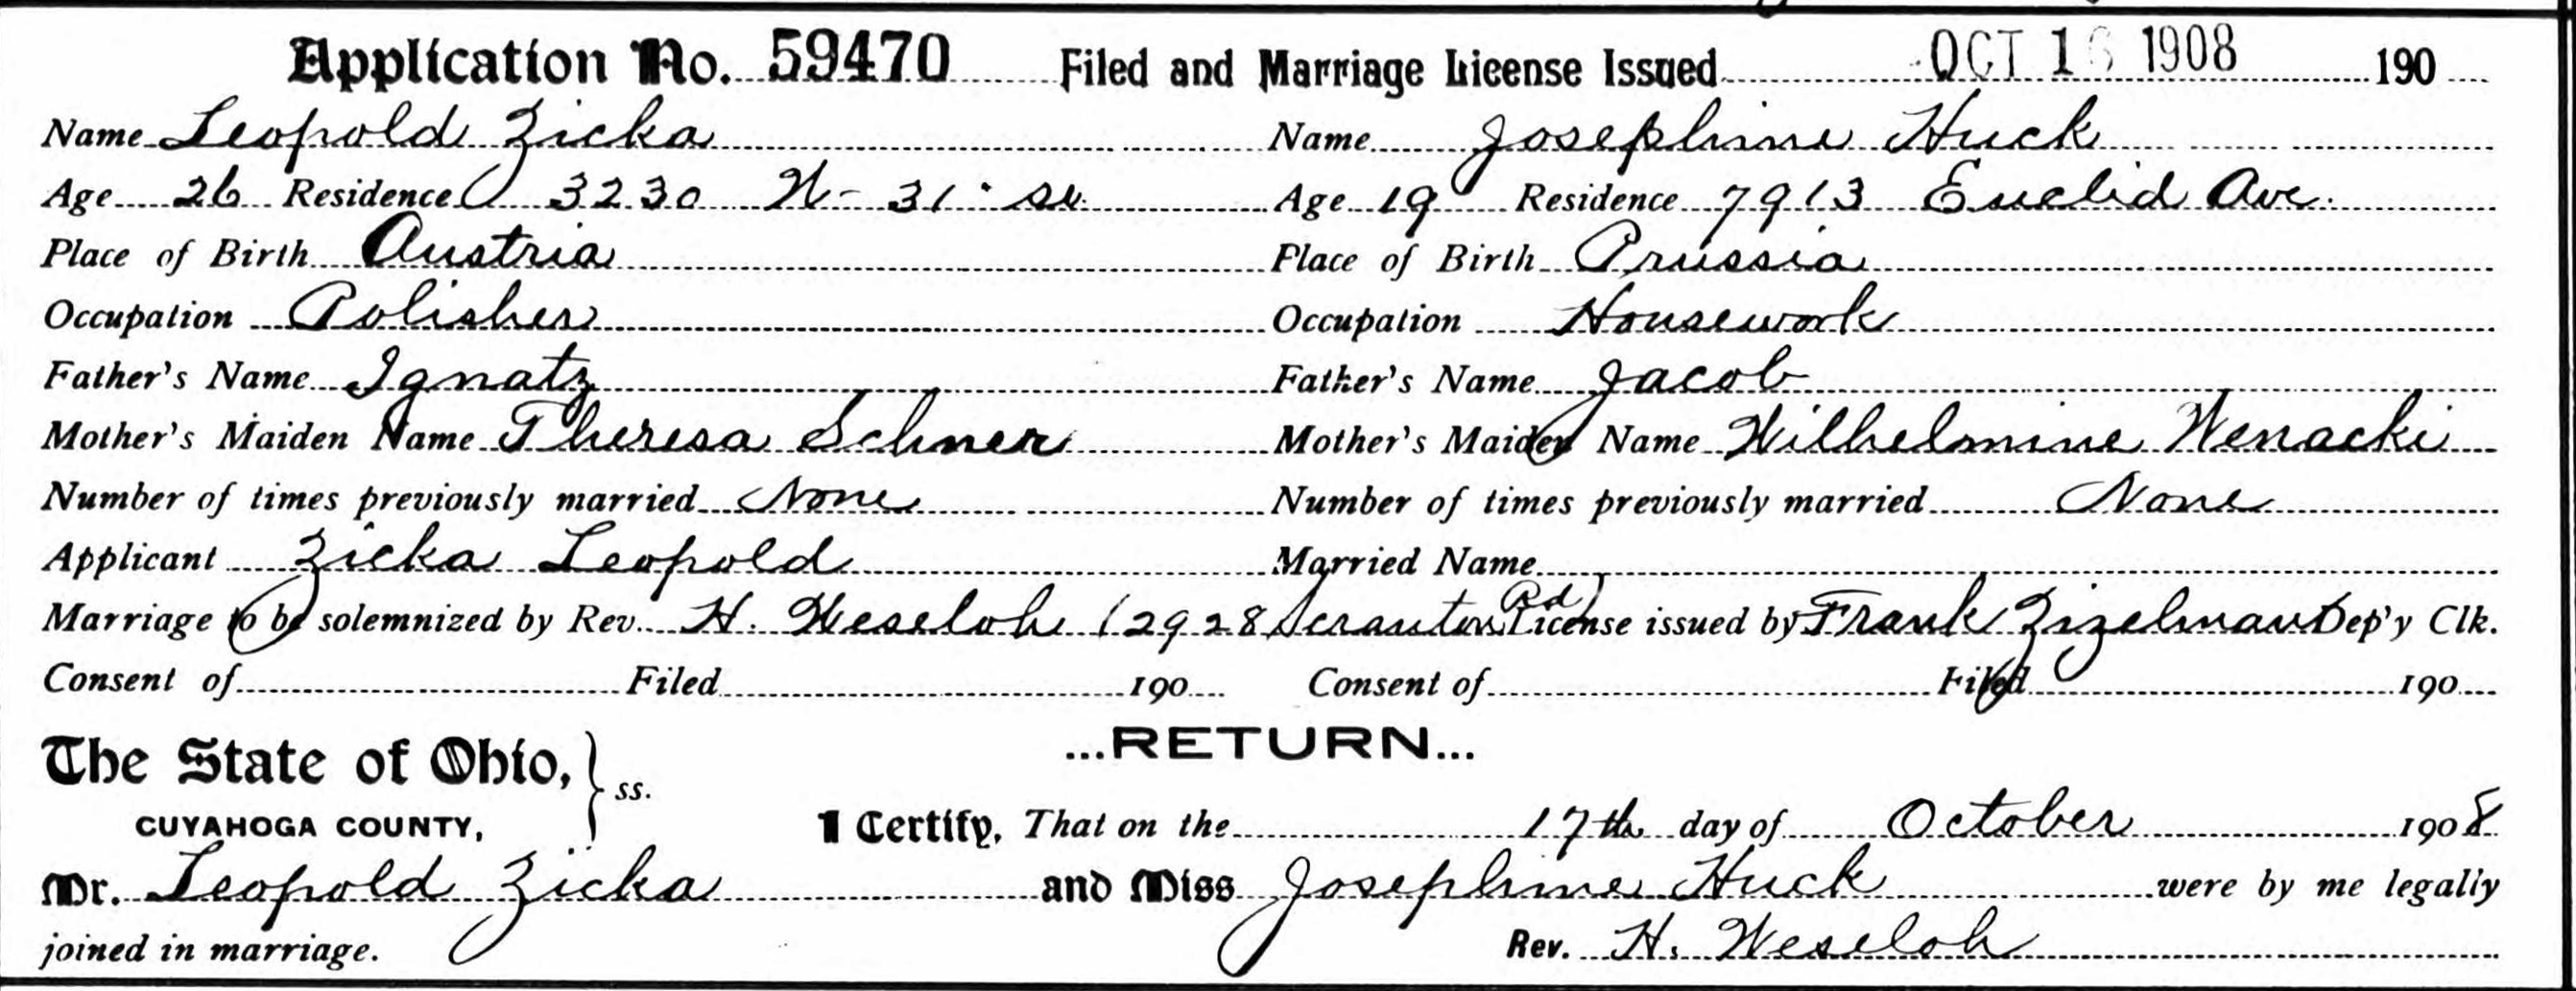 Application No. 59470 Filed and Marriage License Issued OCT 16 1908 190
Name Leopold Zicka Name Josephine Huck
Age 26 Residence 3230 W- 31st St. Age 19 Residence 7913 Euclid Ave.
Place of Birth Austria Place of Birth Prussia
Occupation Polisher Occupation Housework
Father's Name Ignatz Father's Name Jacob
Mother's Maiden Name Theresa Schner Mother's Maiden Name Wilhelmine Wenacki
Number of times previously married None Number of times previously married None
Applicant Zicka Leopold Married Name
Marriage to be solemnized by Rev. H. Weseloh (2928 Scranton Rd) License issued by Frank Zizelman Dep'y Clk.
Consent of Filed 190 Consent of Filed 190
The State of Ohio, ss. ...RETURN...
CUYAHOGA COUNTY, I Certify, That on the 17th day of October 1908
Mr. Leopold Zicka and Miss Josephine Huck were by me legally
joined in marriage. Rev. H. Weseloh